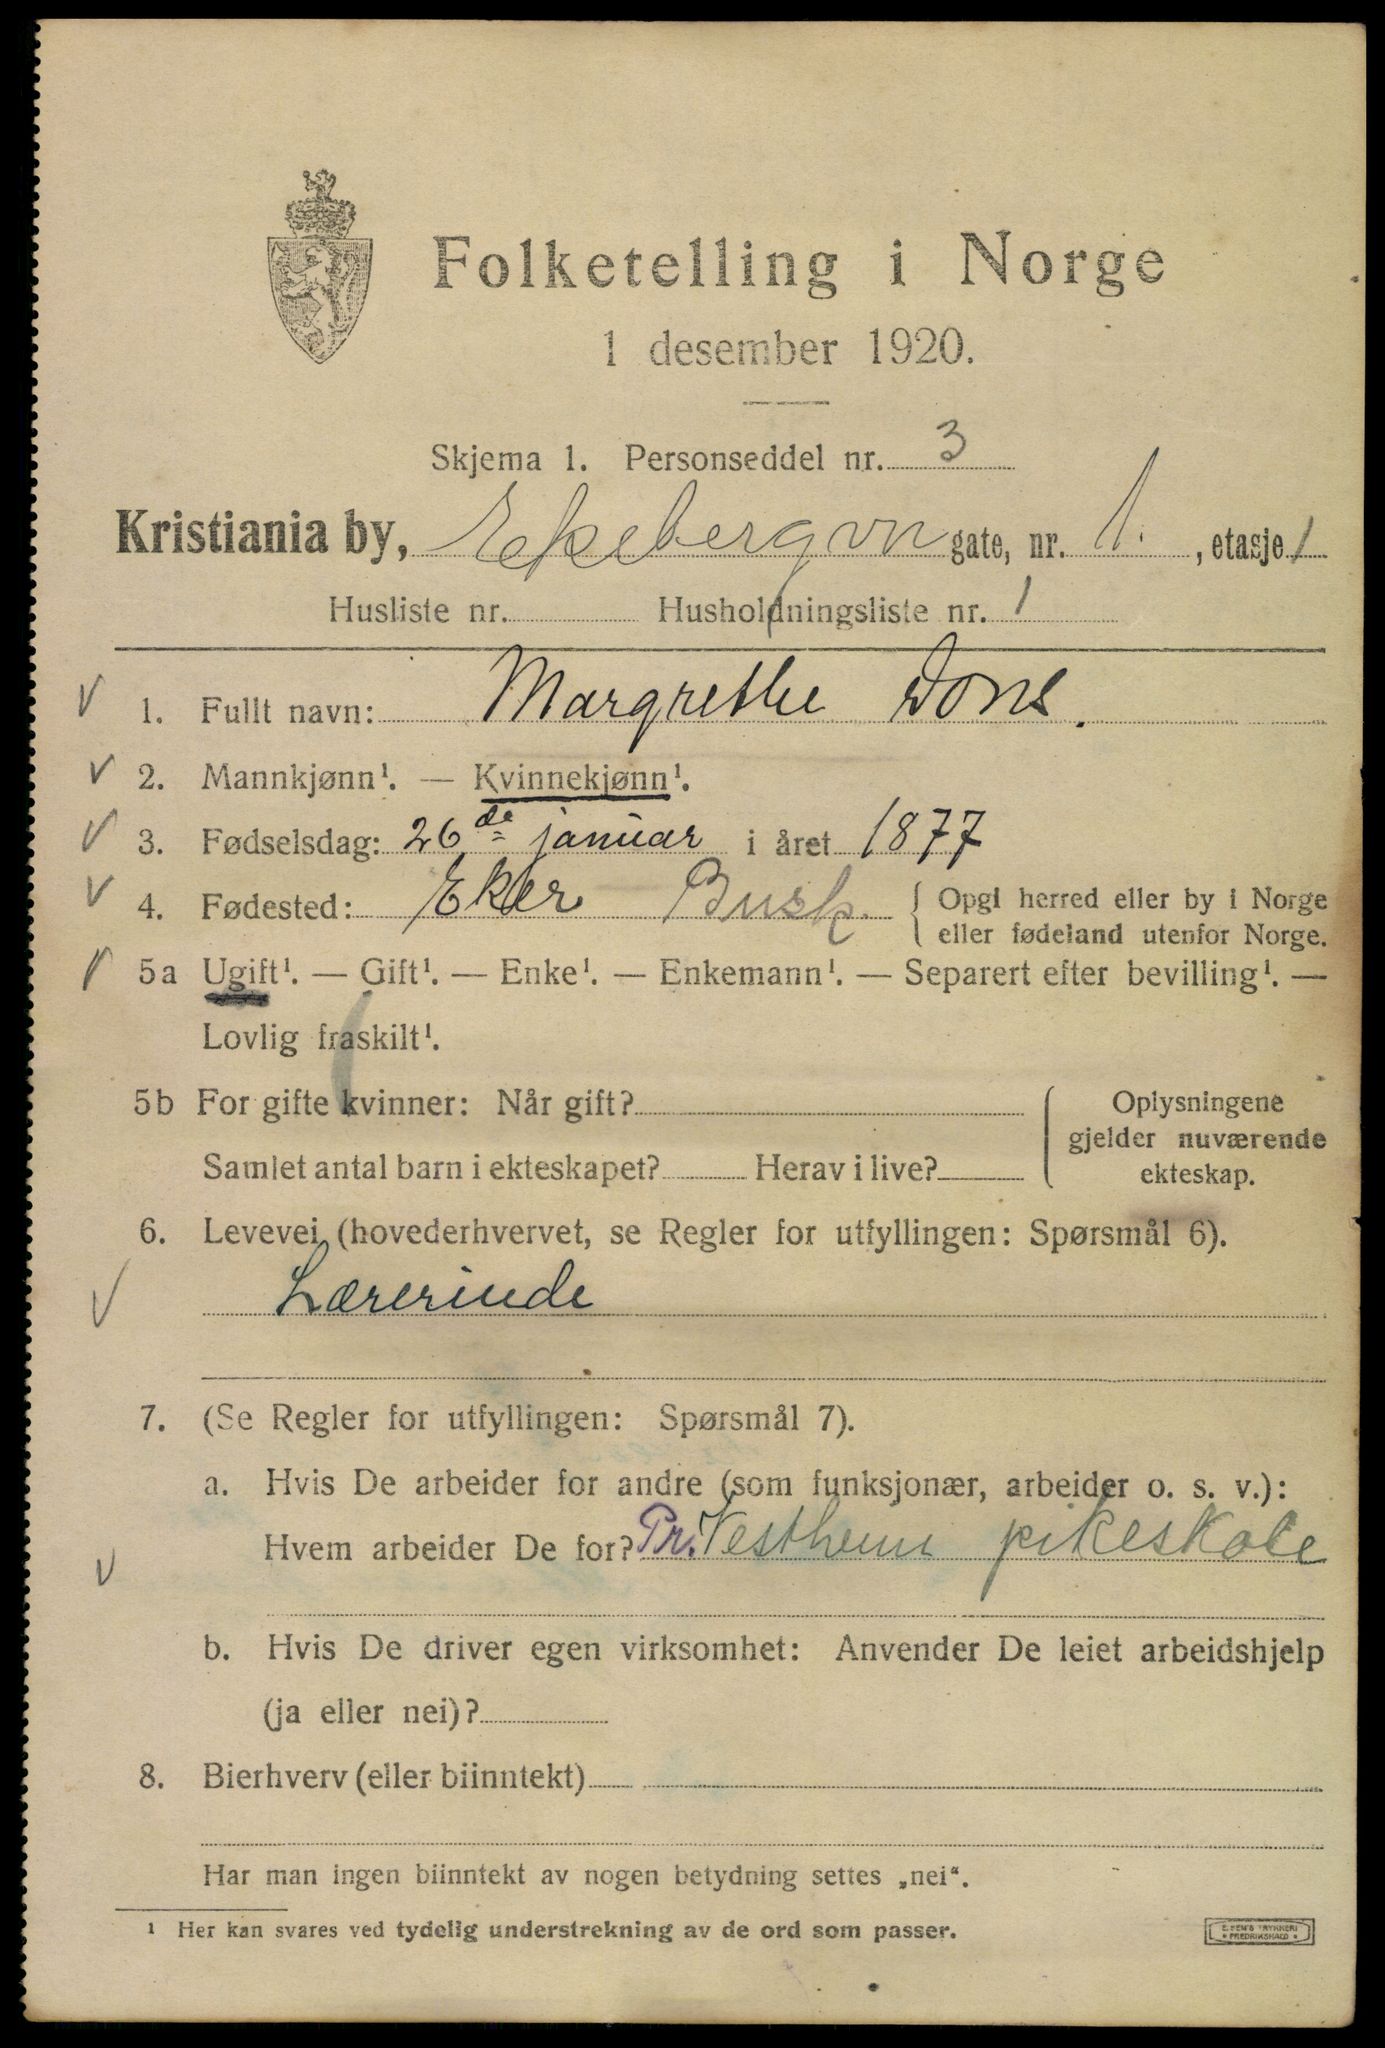 Folketelling i Norge
1 desember 1920.
Skjema 1. Personseddel nr. 3
Kristiania by, Ekebergvn gate, nr. 1. , etasje 1
Husliste nr. Husholdningsliste nr. 1
1. Fullt navn: Margrethe Dons.
2. Mannkjønn¹. — Kvinnekjønn¹.
3. Fødselsdag: 26de januar i året 1877
4. Fødested: Eker Busk. { Opgi herred eller by i Norge
eller fødeland utenfor Norge.
5a Ugift¹. — Gift¹. — Enke¹. — Enkemann¹. — Separert efter bevilling¹. —
Lovlig fraskilt¹.
5b For gifte kvinner: Når gift? { Oplysningene
gjelder nuværende
Samlet antal barn i ekteskapet? Herav i live? ekteskap.
6. Levevei (hovederhvervet, se Regler for utfyllingen: Spørsmål 6).
Lærerinde
7. (Se Regler for utfyllingen: Spørsmål 7).
a. Hvis De arbeider for andre (som funksjonær, arbeider o. s. v.):
Hvem arbeider De for? Pr. Vestheim pikeskole
b. Hvis De driver egen virksomhet: Anvender De leiet arbeidshjelp
(ja eller nei)?
8. Bierhverv (eller biinntekt)
Har man ingen biinntekt av nogen betydning settes „nei“.
¹ Her kan svares ved tydelig understrekning av de ord som passer.
TRYKKERI
FREDRIKSHALD